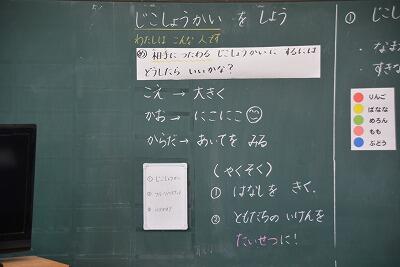 じこしょうかい を しよう
わたしは こんな 人です
め 相手につたわる じこしょうかいに するには
どうしたら いいかな?
こえ → 大きく
かお → にこにこ
からだ → あいてを みる
① じこしょうかい
②
③
(やくそく)
① はなしを きく.
② ともだちの いけんを
たいせつに!
① じこし
・なま
・すきな
りんご
ばなな
めろん
もも
ぶどう